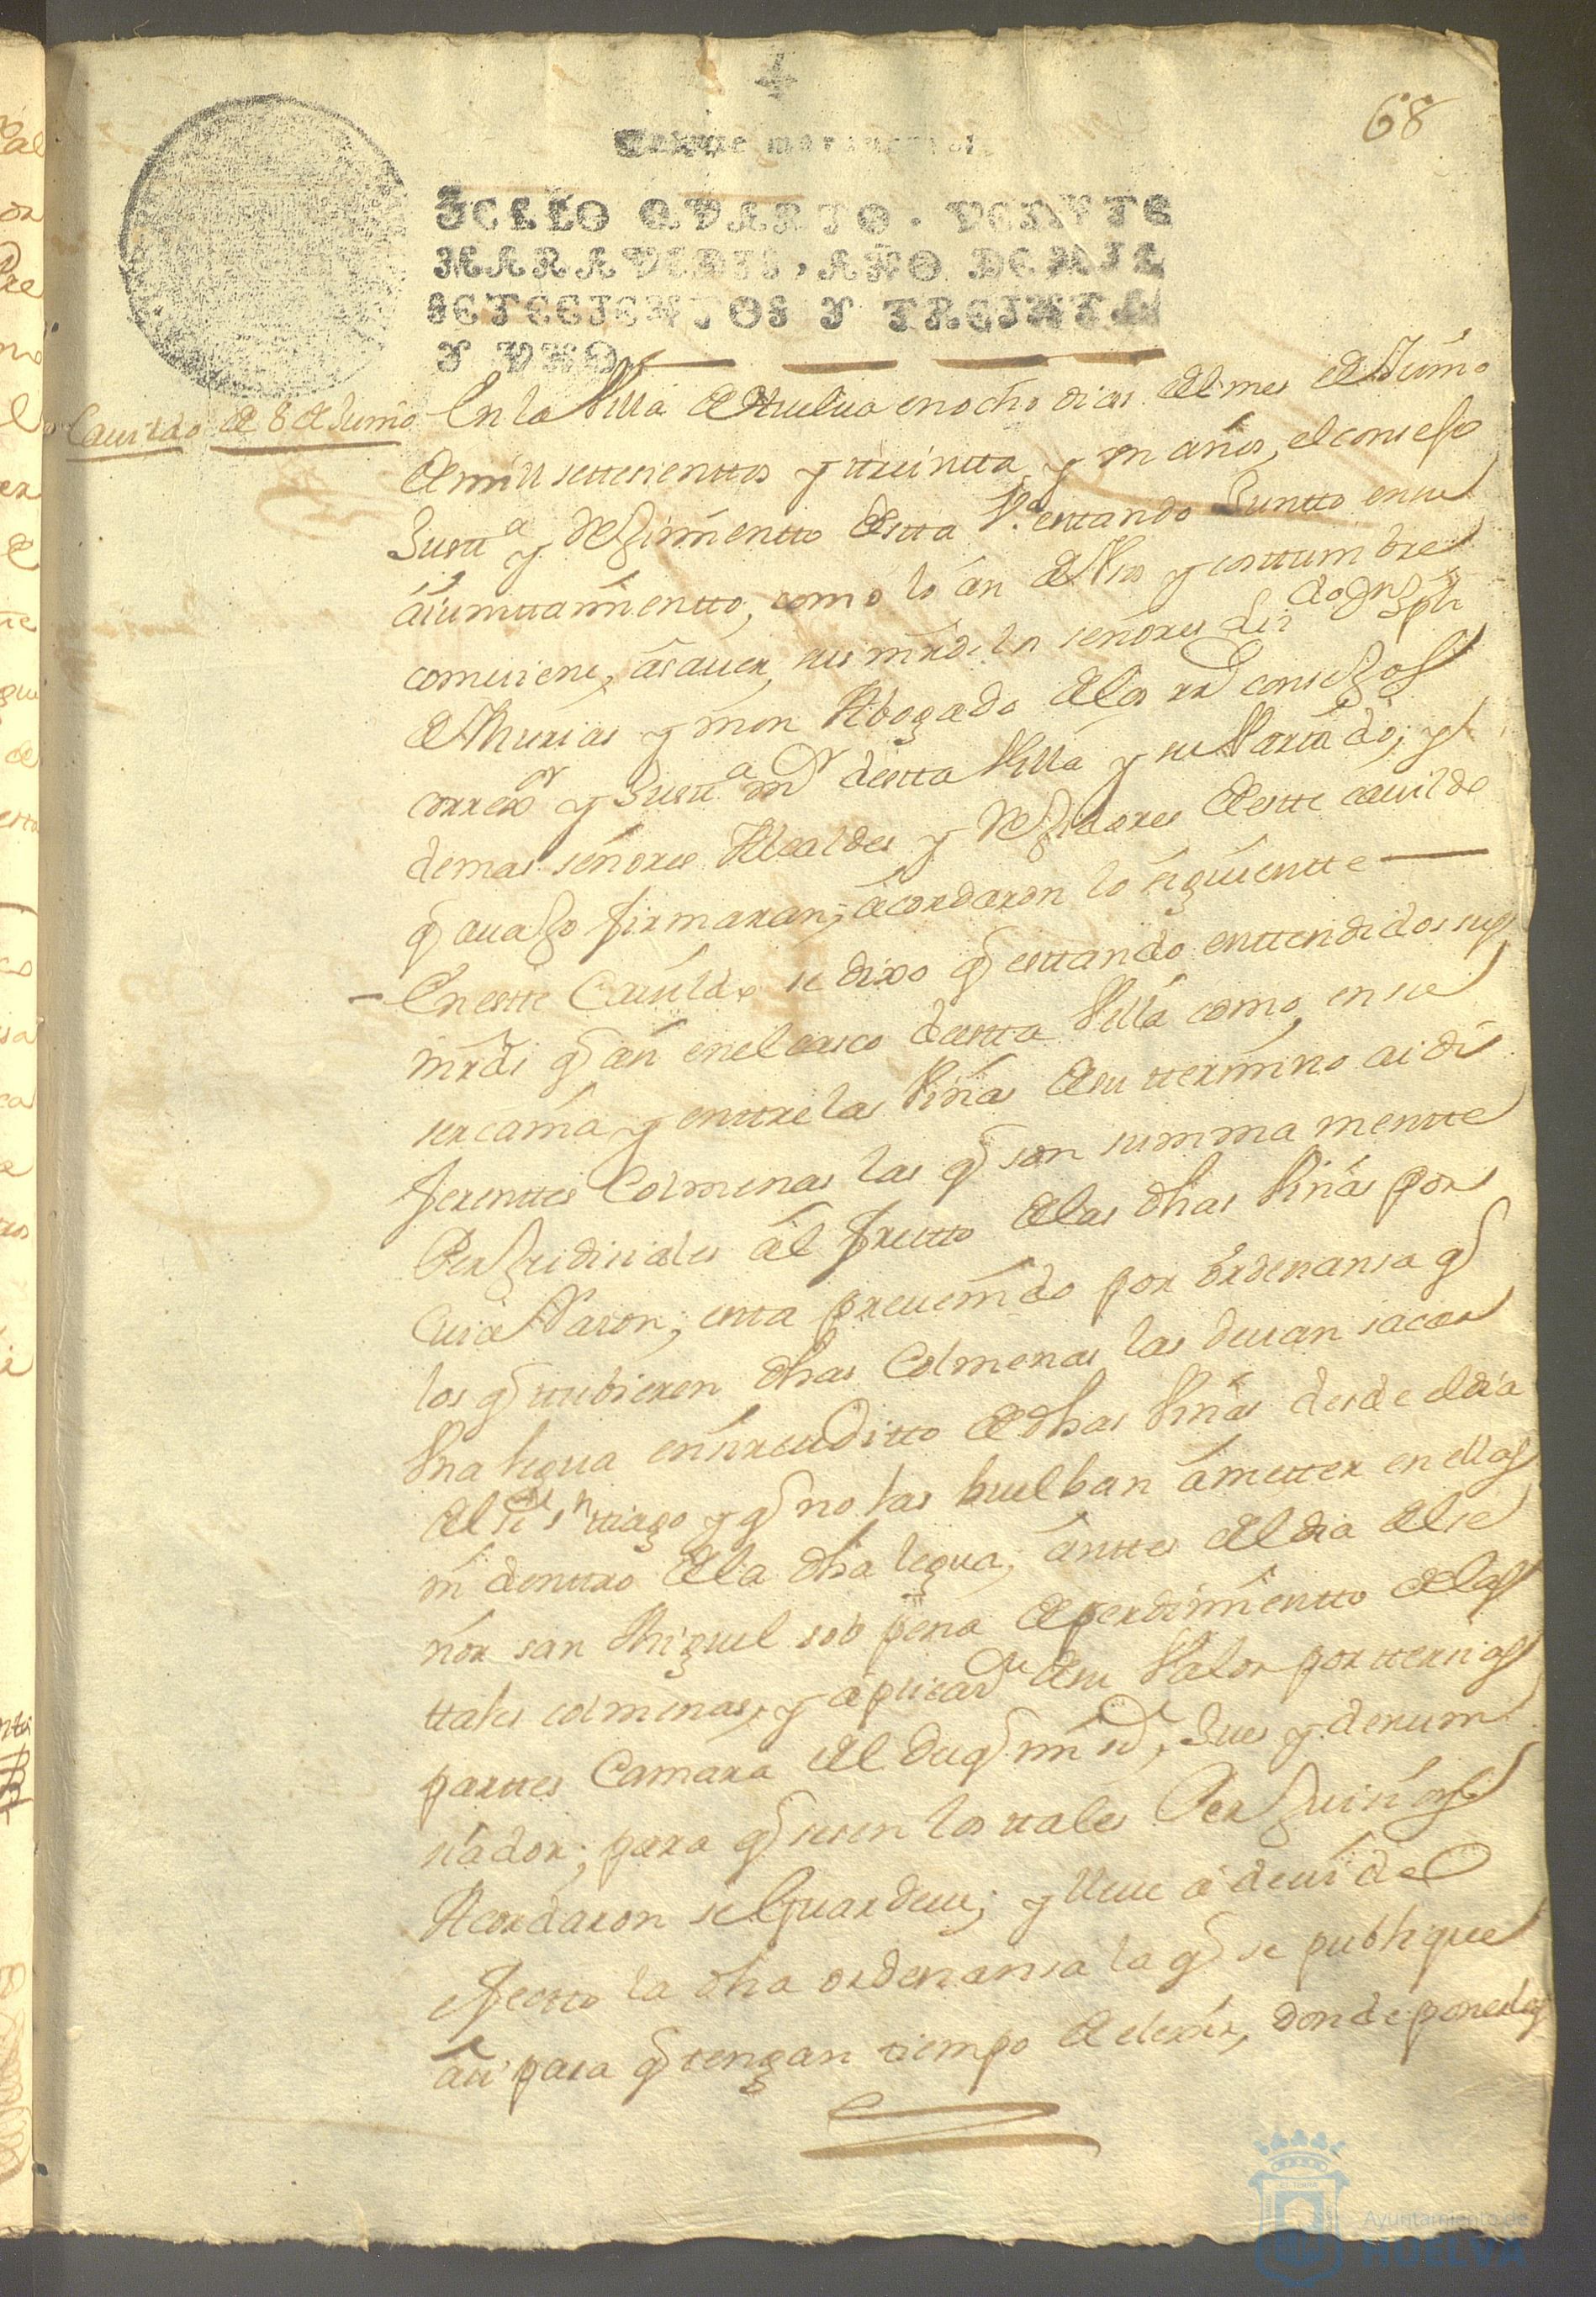 68
Veinte maravedis.
SELLO QVARTO. VEINTE
MARAVEDIS, AÑO DE MIL
SETECIENTOS Y TREINTA
Y VNO.
Cauildo de 8 de Junio
En la Villa de Huelua en ocho dias del mes de Junio
de mill settesienttos y treintta y un años, el consejo
Justta y Rejimientto desta Va. estando Juntto en su
aiunttamientto, como lo án de Vso y costtumbre
combiene, ásauer, sus mrds. los señores Lizdo. Dn. Joph
de Murias y mon Abogado de los rs. consejos
correxor y Justta mor desta Villa y su Esttado; y
demas señores Alcaldes y Rejidores deste cauildo
q auajo firmaran; ácordaron lo siguientte
En estte Cauildo se dixo q esttando enttendidos sus
mrds q asi en el casco desta Villa como, en su
sercania y enttre las Viñas de su ttermino ai di
ferenttes Colmenas las q son summamentte
Perjudisiales ál frutto de las dhas Viñas por
Cuia Rason; estta preuenido por órdenansa q
los q ttubieren dhas Colmenas las deuan sacar
Vna legua en sircuditto de dhas Viñas desde el dia
del sr. Sntiago y q no las buelban á metter en ellas
ni denttro de la dha legua, ánttes del dia del se
ñor san Miguel sob pena de perdimientto de las
ttales colmenas, y áplicadn. de su Valor por tersias
parttes Camara del Duq mi sr, Jues y denun
siador; para q sesen los tales Perjuisios
Acordaron se Guarde; y lleue á deuido
efectto la dha ordenansa la q se publique
asi para q tengan tiempo de elexir, donde ponerlas
Ayuntamiento de
HUELVA